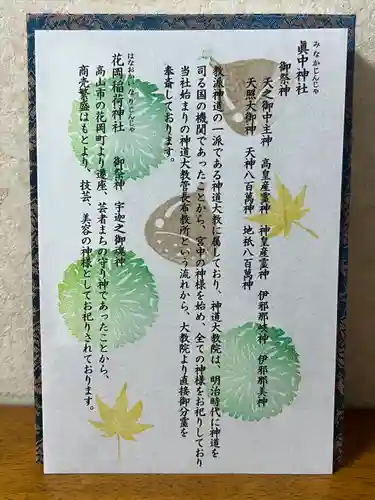 みなかじんじゃ
眞中神社
御祭神
天之御中主神　高皇産霊神　神皇産霊神　伊邪那岐神　伊邪那美神
天照大御神　天神八百萬神　地祇八百萬神
教派神道の一派である神道大教に属しており、神道大教院は、明治時代に神道を
司る国の機関であったことから、宮中の神様を始め、全ての神様をお祀りしており
当社始まりの神道大教管長布教所という流れから、大教院より直接御分霊を
奉斎しております。
はなおかいなりじんじゃ
花岡稲荷神社　御祭神　宇迦之御魂神
高山市の花岡町より遷座、芸者まちの守り神であったことから、
商売繁盛はもとより、技芸、美容の神様としてお祀りされております。